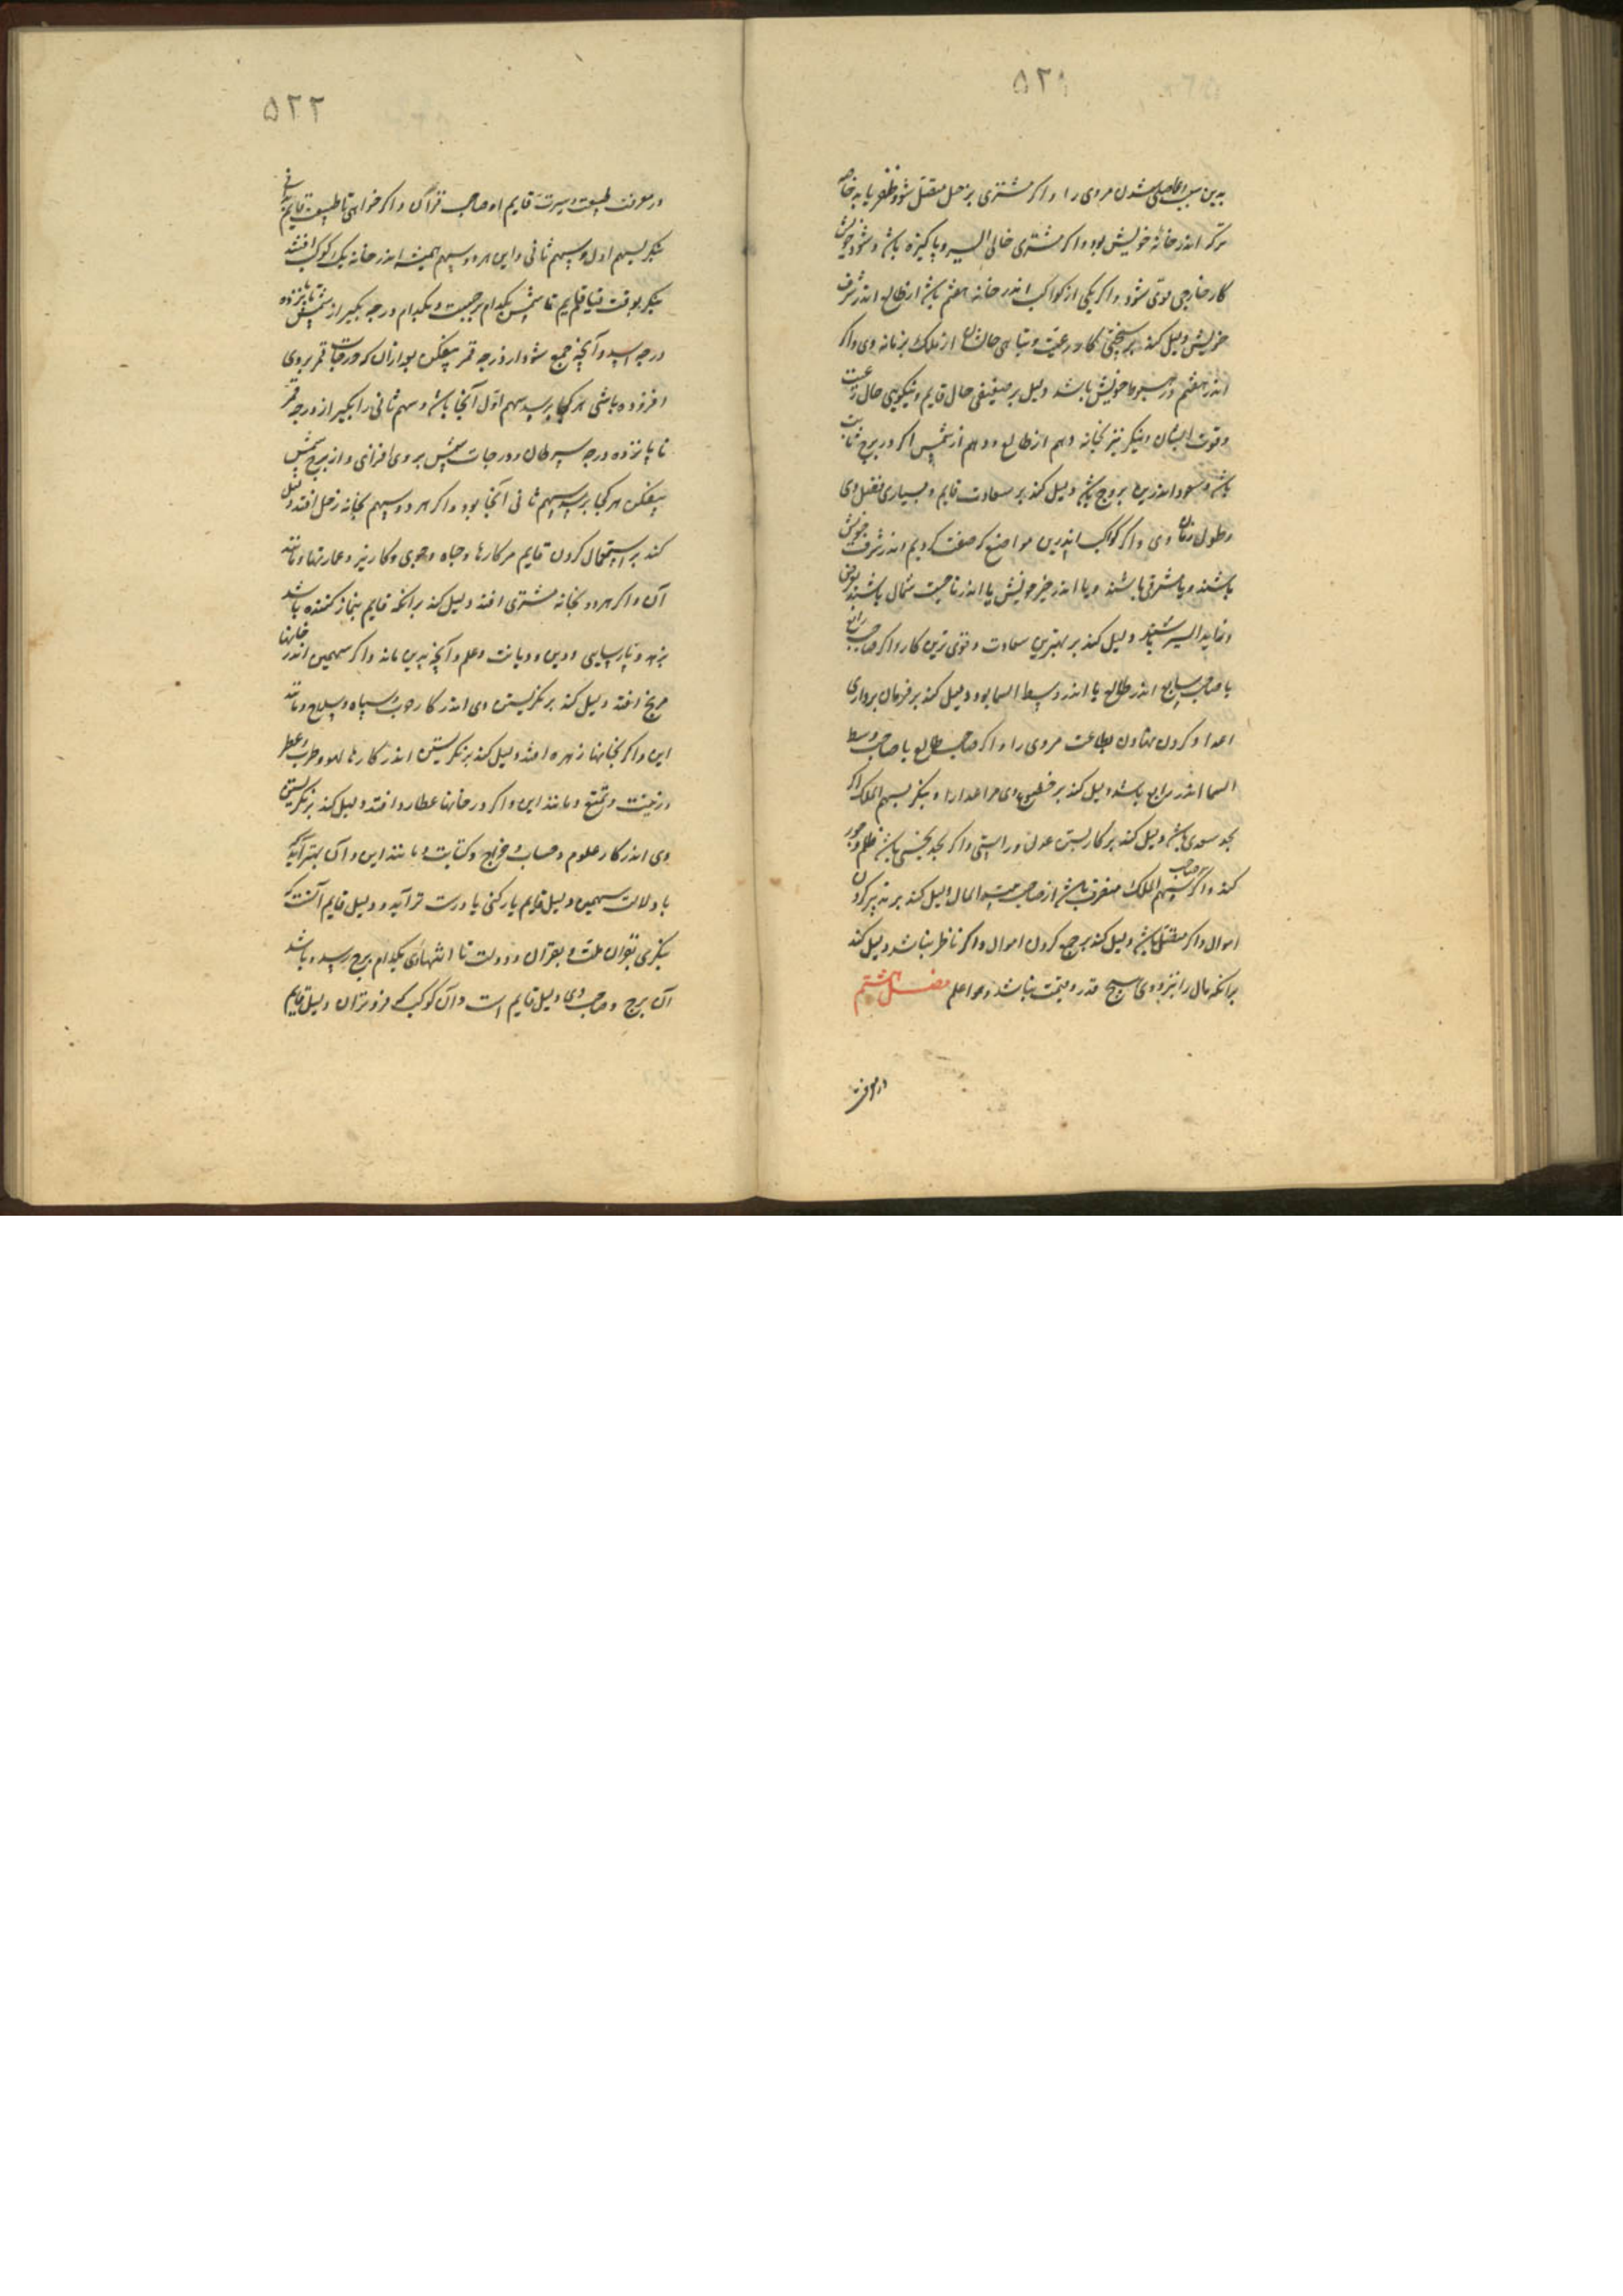 ۵۲۱
بدین سبب حاصل شدن مروی را و اکر مشتری بزحل متصل شود و ظفر یابد خاصه
اندر خانهٔ خویش بود و اکر مشتری خالی السیر و پاکیزه باشد و شود خویش
کار خارجی قوی شود و اکر یکی از کواکب اندر خانه هفتم باشد از طالع اندر شرف
خویش دلیل کند بر سختی کار رعیت و تباهی حالشان از ملک بزمانه وی و اکر
اندر هفتم در هبوط خویش باشد دلیل بر ضعیفی حال قایم و نیکویی حال رعیت
و قوت ایشان و بنکر نیز بخانه دهم از طالع و دهم از شمس اکر در برج ثابت
باشد و سعود اندرین بروج باشد دلیل کند بر سعادت قایم و بسیاری فضل وی
و طول زمان وی و اکر کواکب اندرین مواضع که صفت کردیم اندر شرف خویش
باشند و یا مشرقی باشند و یا اندر حیز خویش یا اندر ناحیت شمال باشند
و زاید السیر باشند دلیل کند بر بهترین سعادت و قوی ترین کار و اکر صاحب رابع
یا صاحب سابع اندر طالع یا اندر وسط السما بود دلیل کند بر فرمان برداری
اعدا و کردن نهادن بطاعت مروی را و اکر صاحب طالع یا صاحب وسط
السما اندر رابع باشد دلیل کند بر خضوع وی مر اعدا را و بنکر بسهم الملک اکر
بحد سعدی باشد دلیل کند بر کار بستن عدل و راستی و اکر بحد نحسی باشد ظلم و جور
کند و اکر صاحب سهم الملک منصرف باشد از صاحب بیت المال دلیل کند بر تدبیر کردن
اموال و اکر متصل باشد دلیل کند بر جمع کردن اموال و اکر ناظر نباشد دلیل کند
برانکه مال را بنزد وی هیچ قدر و قیمت نباشد و هو اعلم فصل هشتم
در معرفت
۵۲۲
در معرفت طبیعت و سیرت قایم از صاحب قران و اکر خواهی تا طبیعت قایم بدانی
بنکر بسهم اول و بسهم ثانی و این هر دو سهم همیشه اندر خانه یک کوکب افتند
بنکر بوقت قیام قایم تا شمس بکدام برجست و بکدام درجه بکیر از شمس تا پانزده
درجه اسد و آنچه جمع شود از درجه قمر بیفکن بعد ازان که درجات قمر بروی
افزوده باشی هر کجا برسد سهم اول آنجا باشد و سهم ثانی را بکیر از درجه قمر
تا پانزده درجه سرطان و درجات شمس بروی افزای و از برج شمس
بیفکن هر کجا برسد سهم ثانی آنجا بود و اکر هر دو سهم بخانه زحل افتد دلیل
کند بر استعمال کردن قایم مر کارها و چاه و جوی و کاریز و عمارتها و مانند
آن و اکر هر دو بخانه مشتری افتد دلیل کند برانکه قایم نماز کننده باشد
بزهد و پارسایی و دین و دیانت و علم و آنچه بدین ماند و اکر سهمین اندر خانها
مریخ افتد دلیل کند بر نکریستن وی اندر کار حرب و سپاه و سلاح و مانند
این و اکر بخانها زهره افتد دلیل کند بر نکریستن اندر کارها لهو و طرب و عطر
و زینت و تمتع و مانند این و اکر در خانها عطارد افتد دلیل کند بر نکریستن
وی اندر کار علوم و حساب و خراج و کتابت و مانند این و آن بهتر آید که
با دلالت سهمین دلیل قایم یار کنی یا درست تر آید و دلیل قایم آنست که
بنکری بقران ملت و بقران دولت تا انتهای بکدام برج رسیده باشد
آن برج و صاحب وی دلیل قایم است و آن کوکب که فزونتر ان دلیل قایم